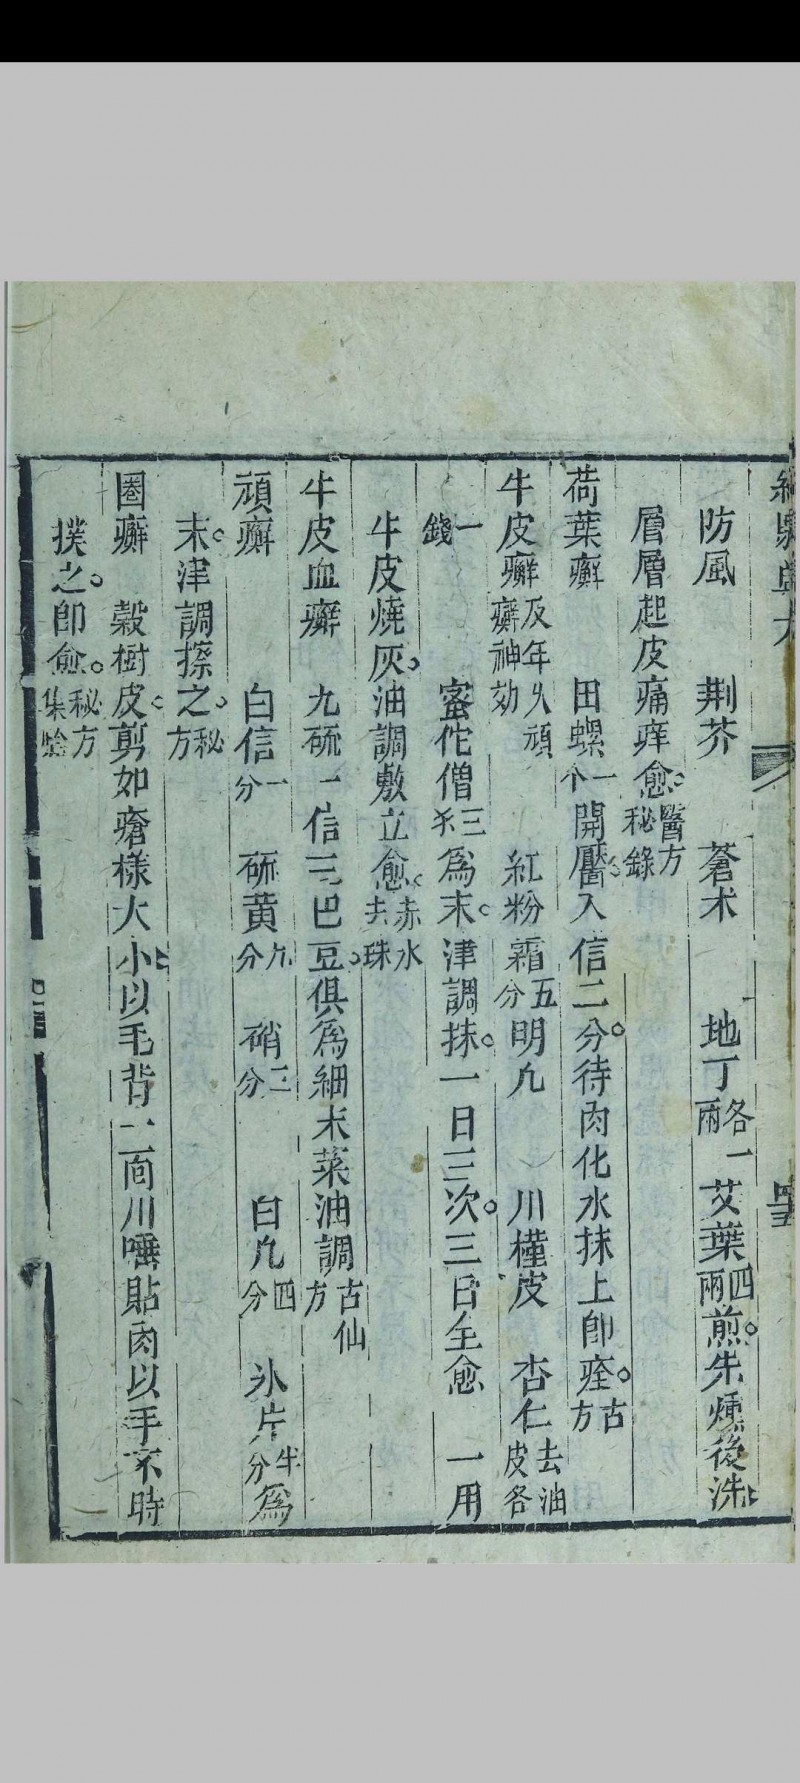 防風　荆芥　蒼术　地丁各一兩　艾葉四兩煎。先燻後洗、
層層起皮痛痒愈。醫方秘錄
荷葉癬　田螺一个開靨、入信二分。待肉化水抹上即痊。古方
牛皮癬及年久頑癬神効　紅粉霜五分　明凡　川槿皮　杏仁去油皮各
一錢　蜜佗僧三分為末。津調抹。一日三次。三日全愈　一用
牛皮燒灰、油調敷立愈。赤水去珠
牛皮血癬　九硫一信三巴豆。俱為細末菜油調古仙方
頑癬　白信一分　硫黄九分　硝三分　白凡四分　氷片半分為
末。津調搽之。秘方
圈癬　穀樹皮。剪如瘡樣大小、以毛背一面川唾貼肉以手不時
撲之。即愈。秘方集驗